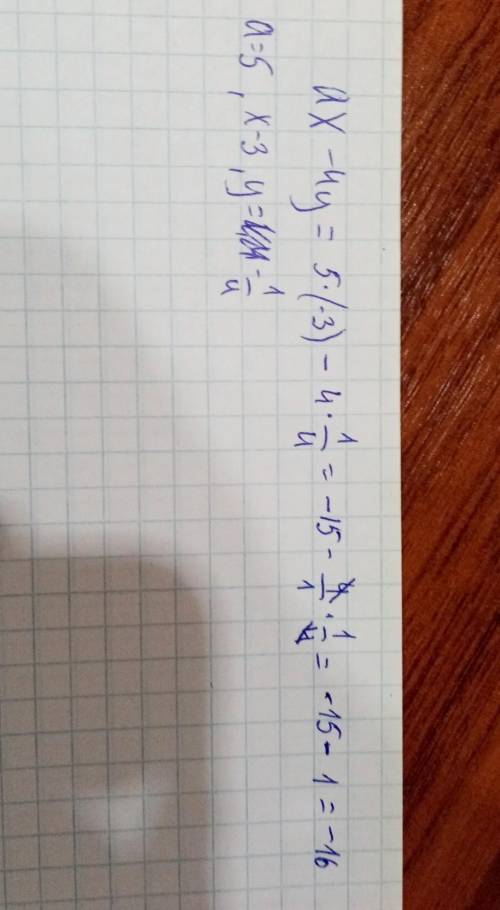 ax - 4y = 5·(-3) - 4·1/4 = -15 - 4/1·1/4 = -15 - 1 = -16
a=5, x-3, y= -1/4